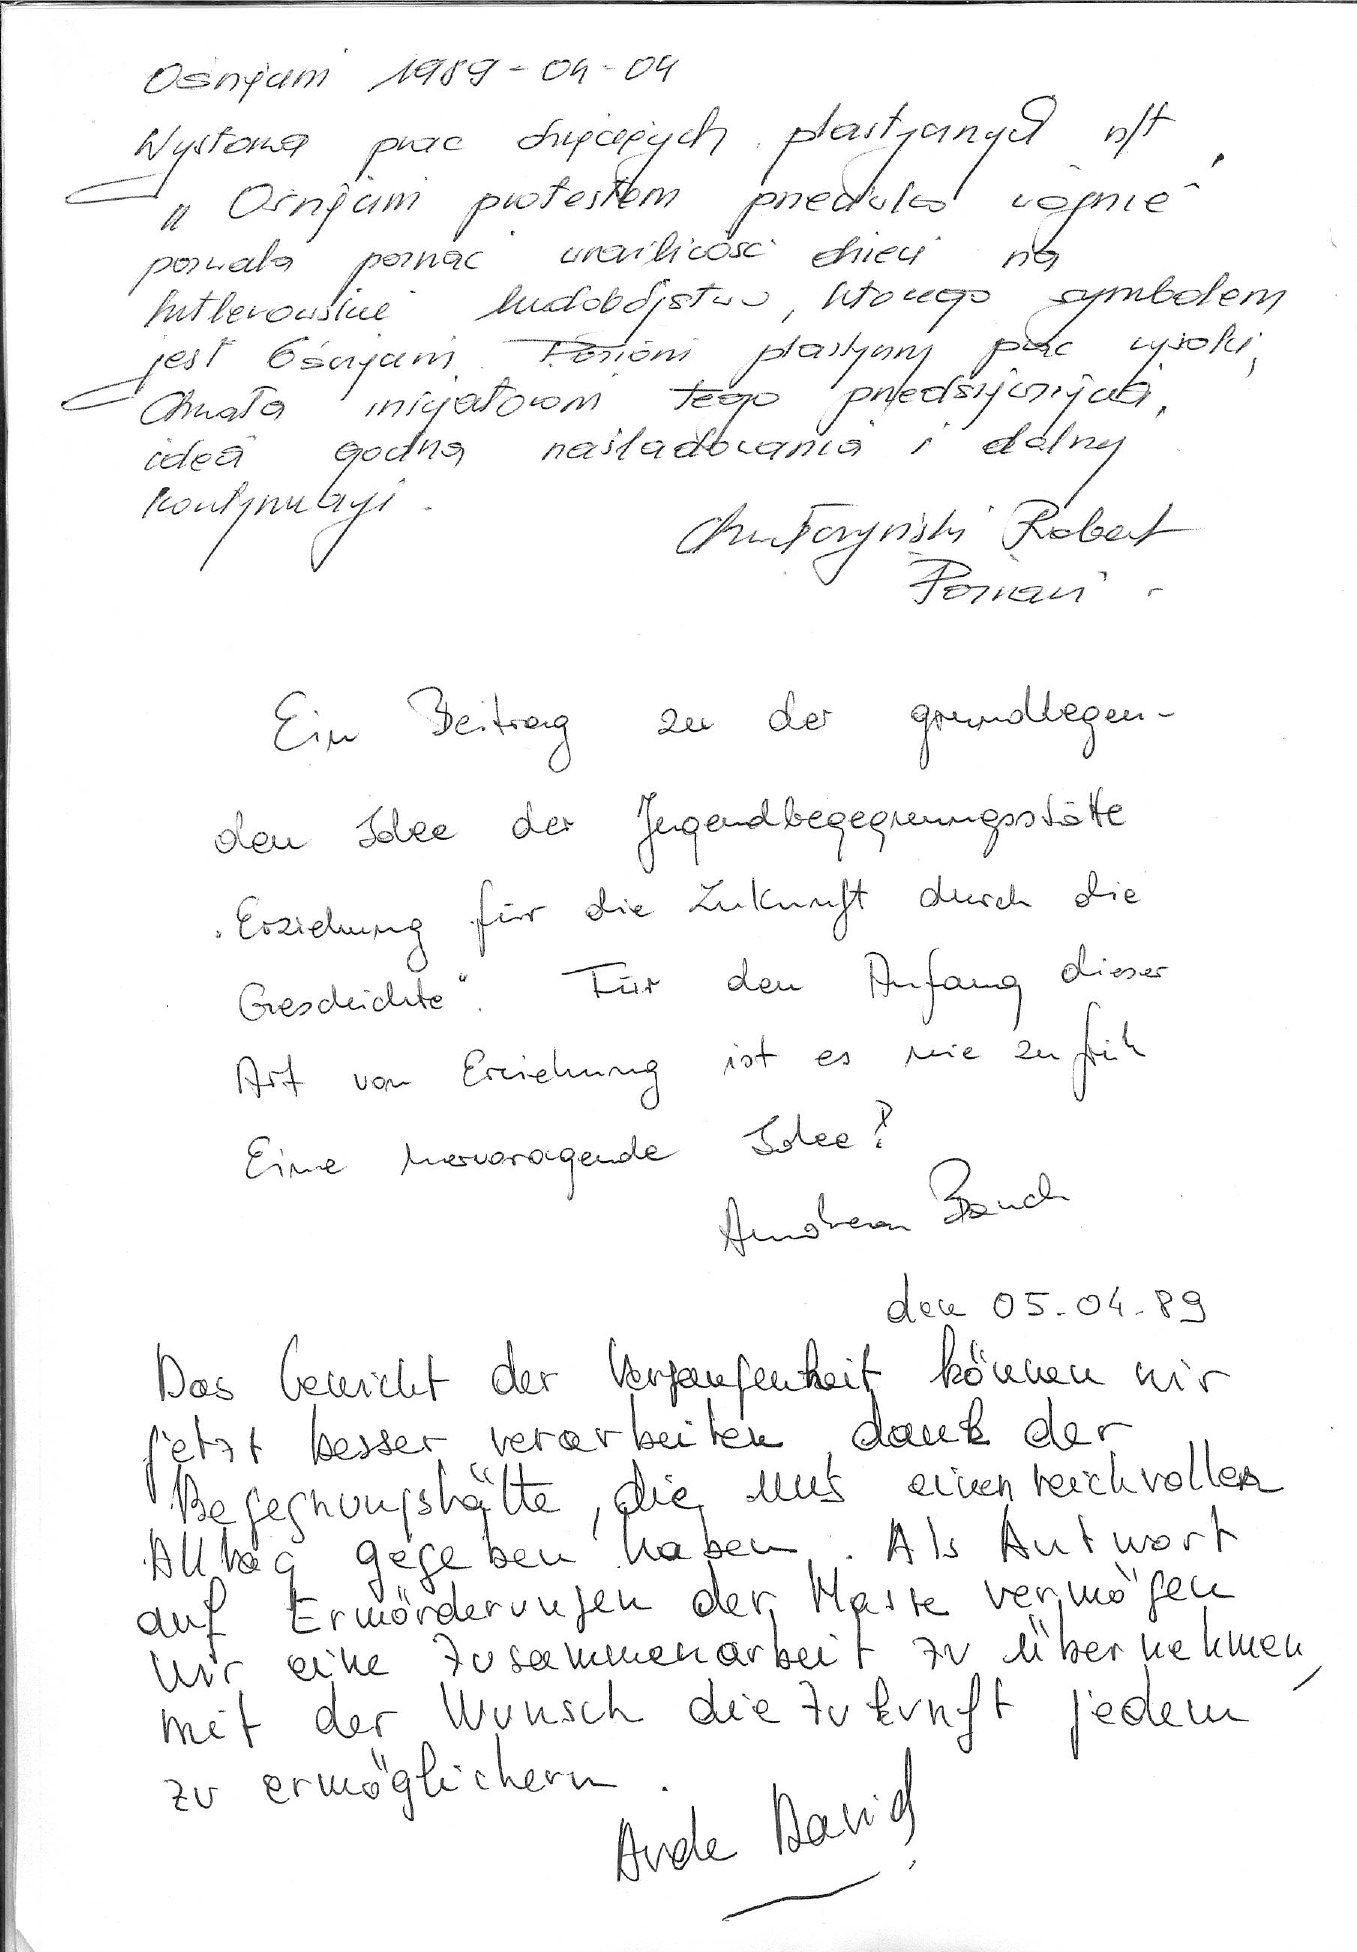 Oświęcim 1989-04-04
Wystawa prac dziecięcych plastycznych n/t
"Oświęcim protestem przeciwko wojnie"
pozwala poznać wrażliwość dzieci na
hitlerowskie ludobójstwo, którego symbolem
jest Oświęcim. Poziom plastyczny prac wysoki,
Chwała inicjatorom tego przedsięwzięcia,
idea godna naśladowania i dalszej
kontynuacji.
Robert
Poznań
Ein Beitrag zu der grundlegen-
den Idee der Jugendbegegnungsstätte
"Erziehung für die Zukunft durch die
Geschichte". Für den Anfang dieser
Art von Erziehung ist es nie zu früh
Eine hervoragende Idee!
Bauch
den 05.04.89
Das Gewicht der Vergangenheit können wir
jetzt besser verarbeiten, dank der
Begegnungstätte, die uns einen reichvollen
Alltag gegeben haben. Als Antwort
auf Ermörderungen der Masse vermögen
wir eine Zusammenarbeit zu übernehmen,
mit der Wunsch die Zukunft jedem
zu ermöglichern.
Aude David